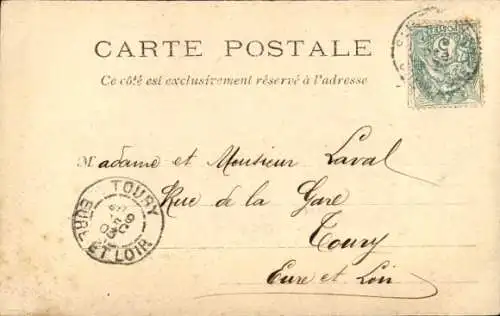 CARTE POSTALE
Ce côté est exclusivement réservé à l'adresse
Madame et Monsieur Laval
Rue de la Gare
Toury
Eure et Loir
TOURY
EURE ET LOIR
5